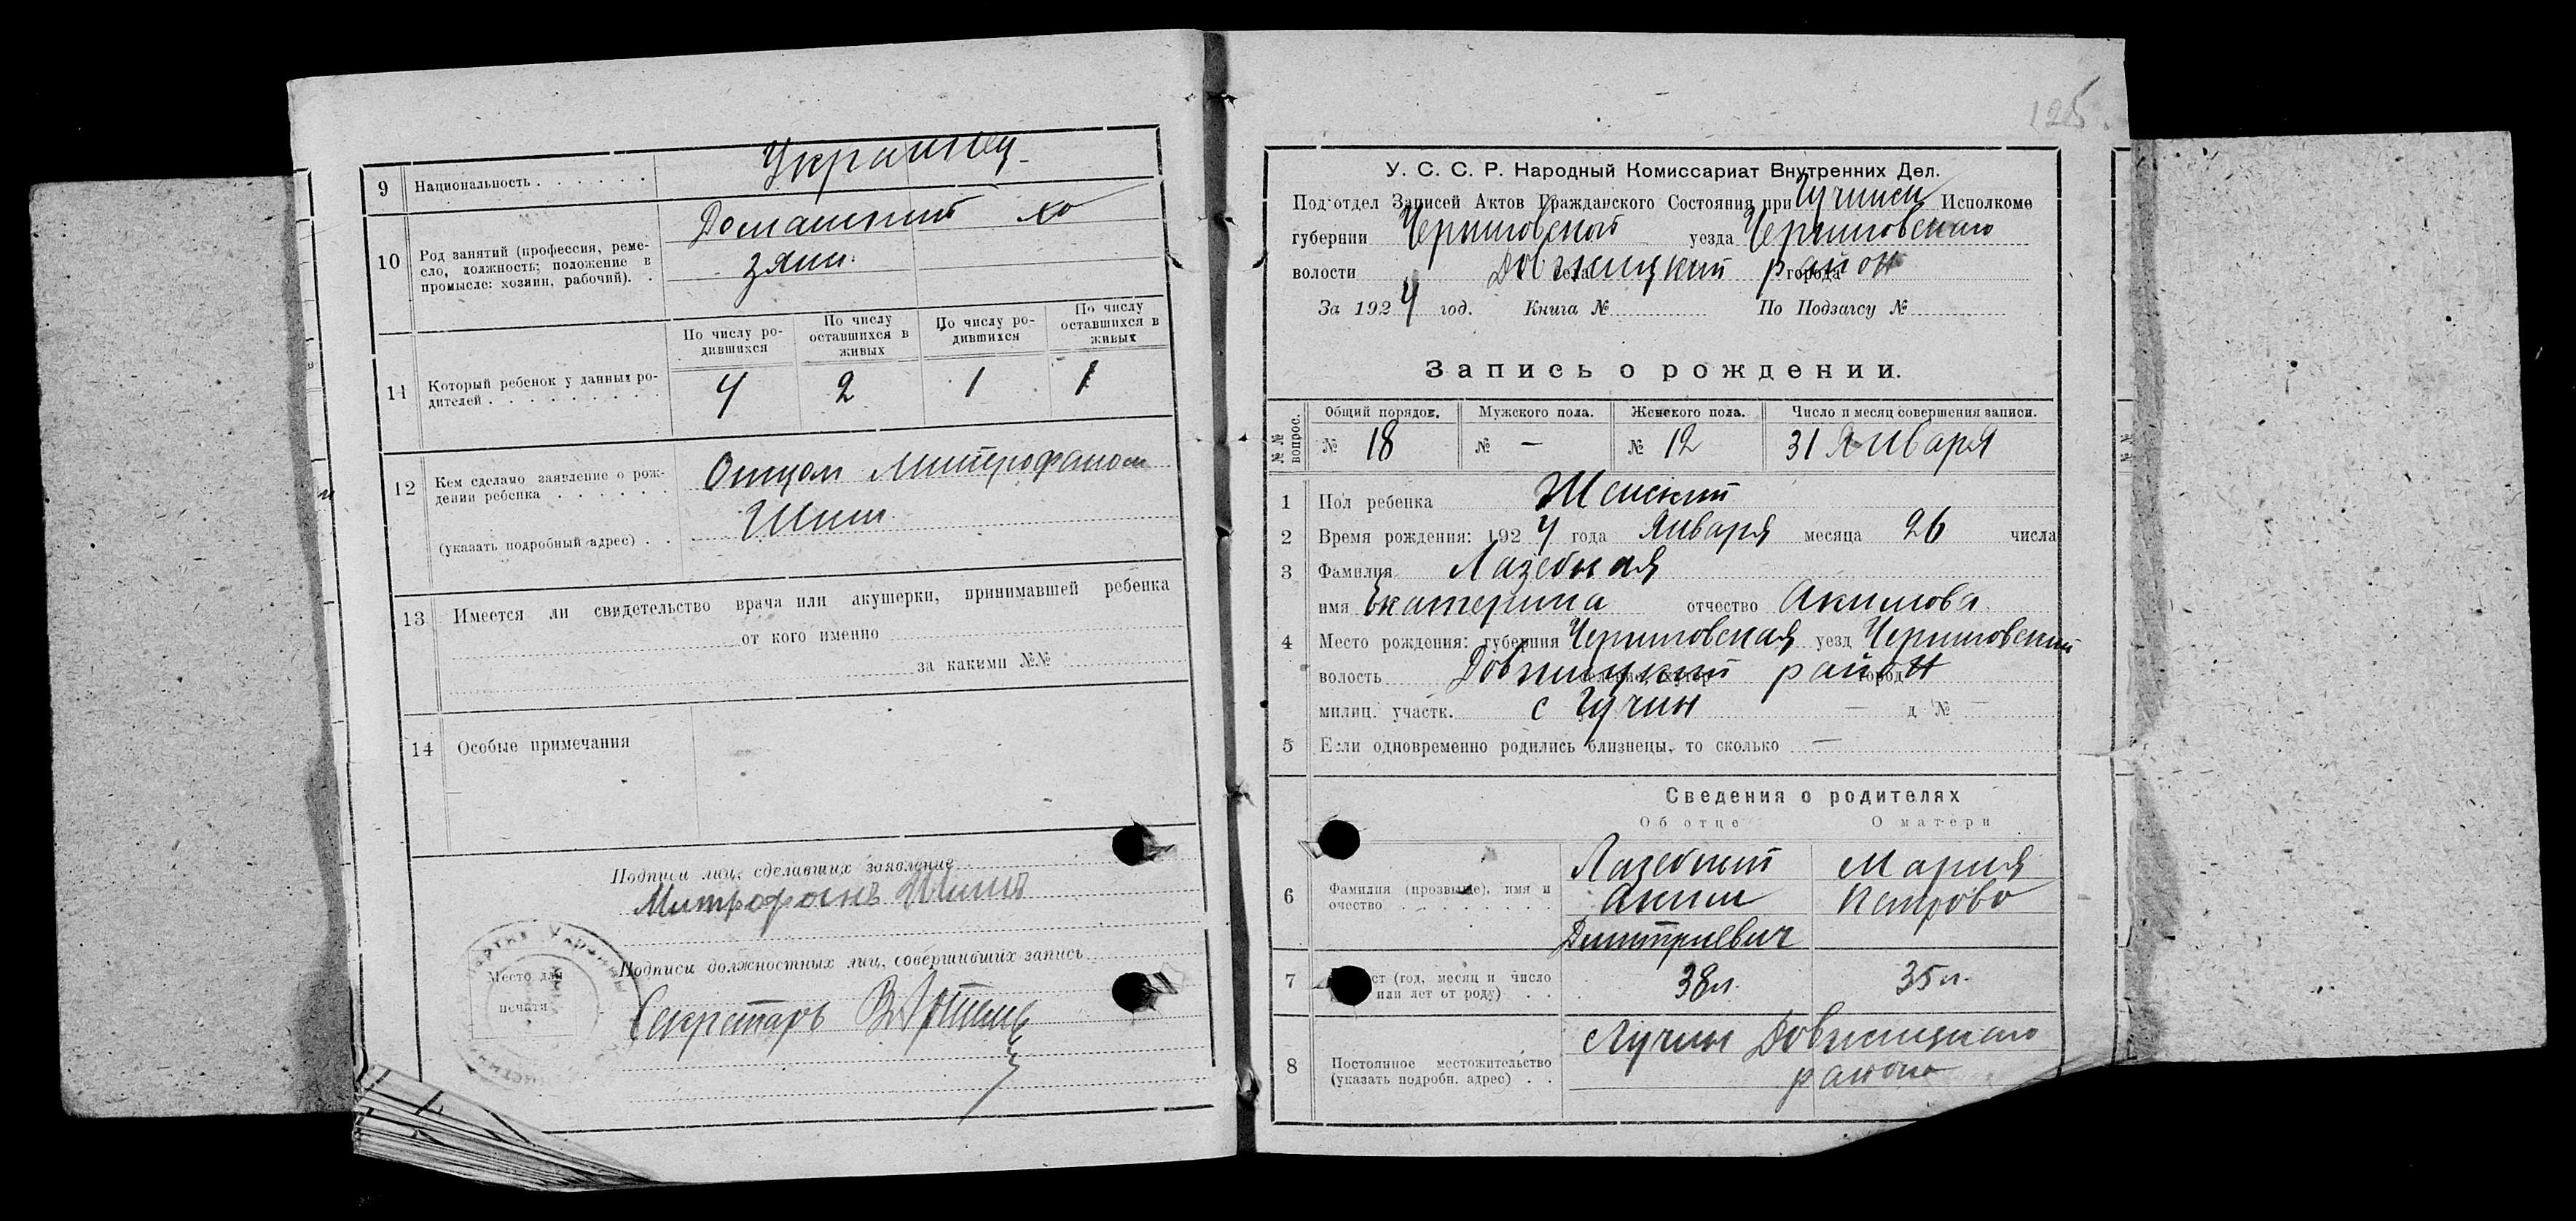 9 Национальность . . . . . . Украинец
10 Род занятий (профессия, реме-
сло, должность; положение в
промысле: хозяин, рабочий). .
Домашний хо
зяин.
11 Который ребенок у данных ро-
дителей . . . . . . . . .
По числу ро-
дившихся
По числу
оставшихся в
живых
По числу ро-
дившихся
По числу
оставшихся в
живых
4 2 1 1
12 Кем сделано заявление о рож-
дении ребенка . . . . . .
(указать подробный адрес) . .
Отцом Митрофаном
Шит.
13 Имеется ли свидетельство врача или акушерки, принимавшей ребенка
от кого именно
за какими №№
14 Особые примечания
Подписи лиц, сделавших заявление
Митрофанъ
Подписи должностных лиц, совершивших запись
Место для
печати
Секретарь
125.
У. С. С. Р. Народный Комиссариат Внутренних Дел.
Под'отдел Записей Актов Гражданского Состояния при Гучинск Исполкоме
губернии Черниговской уезда Черниговского
волости Довжицкий села район города
За 1924 год. Книга № По Подзагсу №
Запись о рождении.
№ № вопрос.
Общий порядов. Мужского пола. Женского пола. Число и месяц совершения записи.
№ 18 № — № 12 31 Января
1 Пол ребенка Женский
2 Время рождения: 1924 года Января месяца 26 числа
3 Фамилия Лазебная
имя Екатерина отчество Акимова.
4 Место рождения: губерния Черниговская уезд Черниговский
волость Довжицкий район город
милиц. участк. с Гучин — д. № —
5 Если одновременно родились близнецы, то сколько —
Сведения о родителях
Об отце О матери
6 Фамилия (прозвыще), имя и
очество . . . . . . . . .
Лазебный
Аким
Дмитриевич
Мария
Петрово
7 ст (год, месяц и число
или лет от роду) . .
38 л. 35 л.
8 Постоянное местожительство
(указать подробн. адрес) . .
с Гучин Довжицкого
района